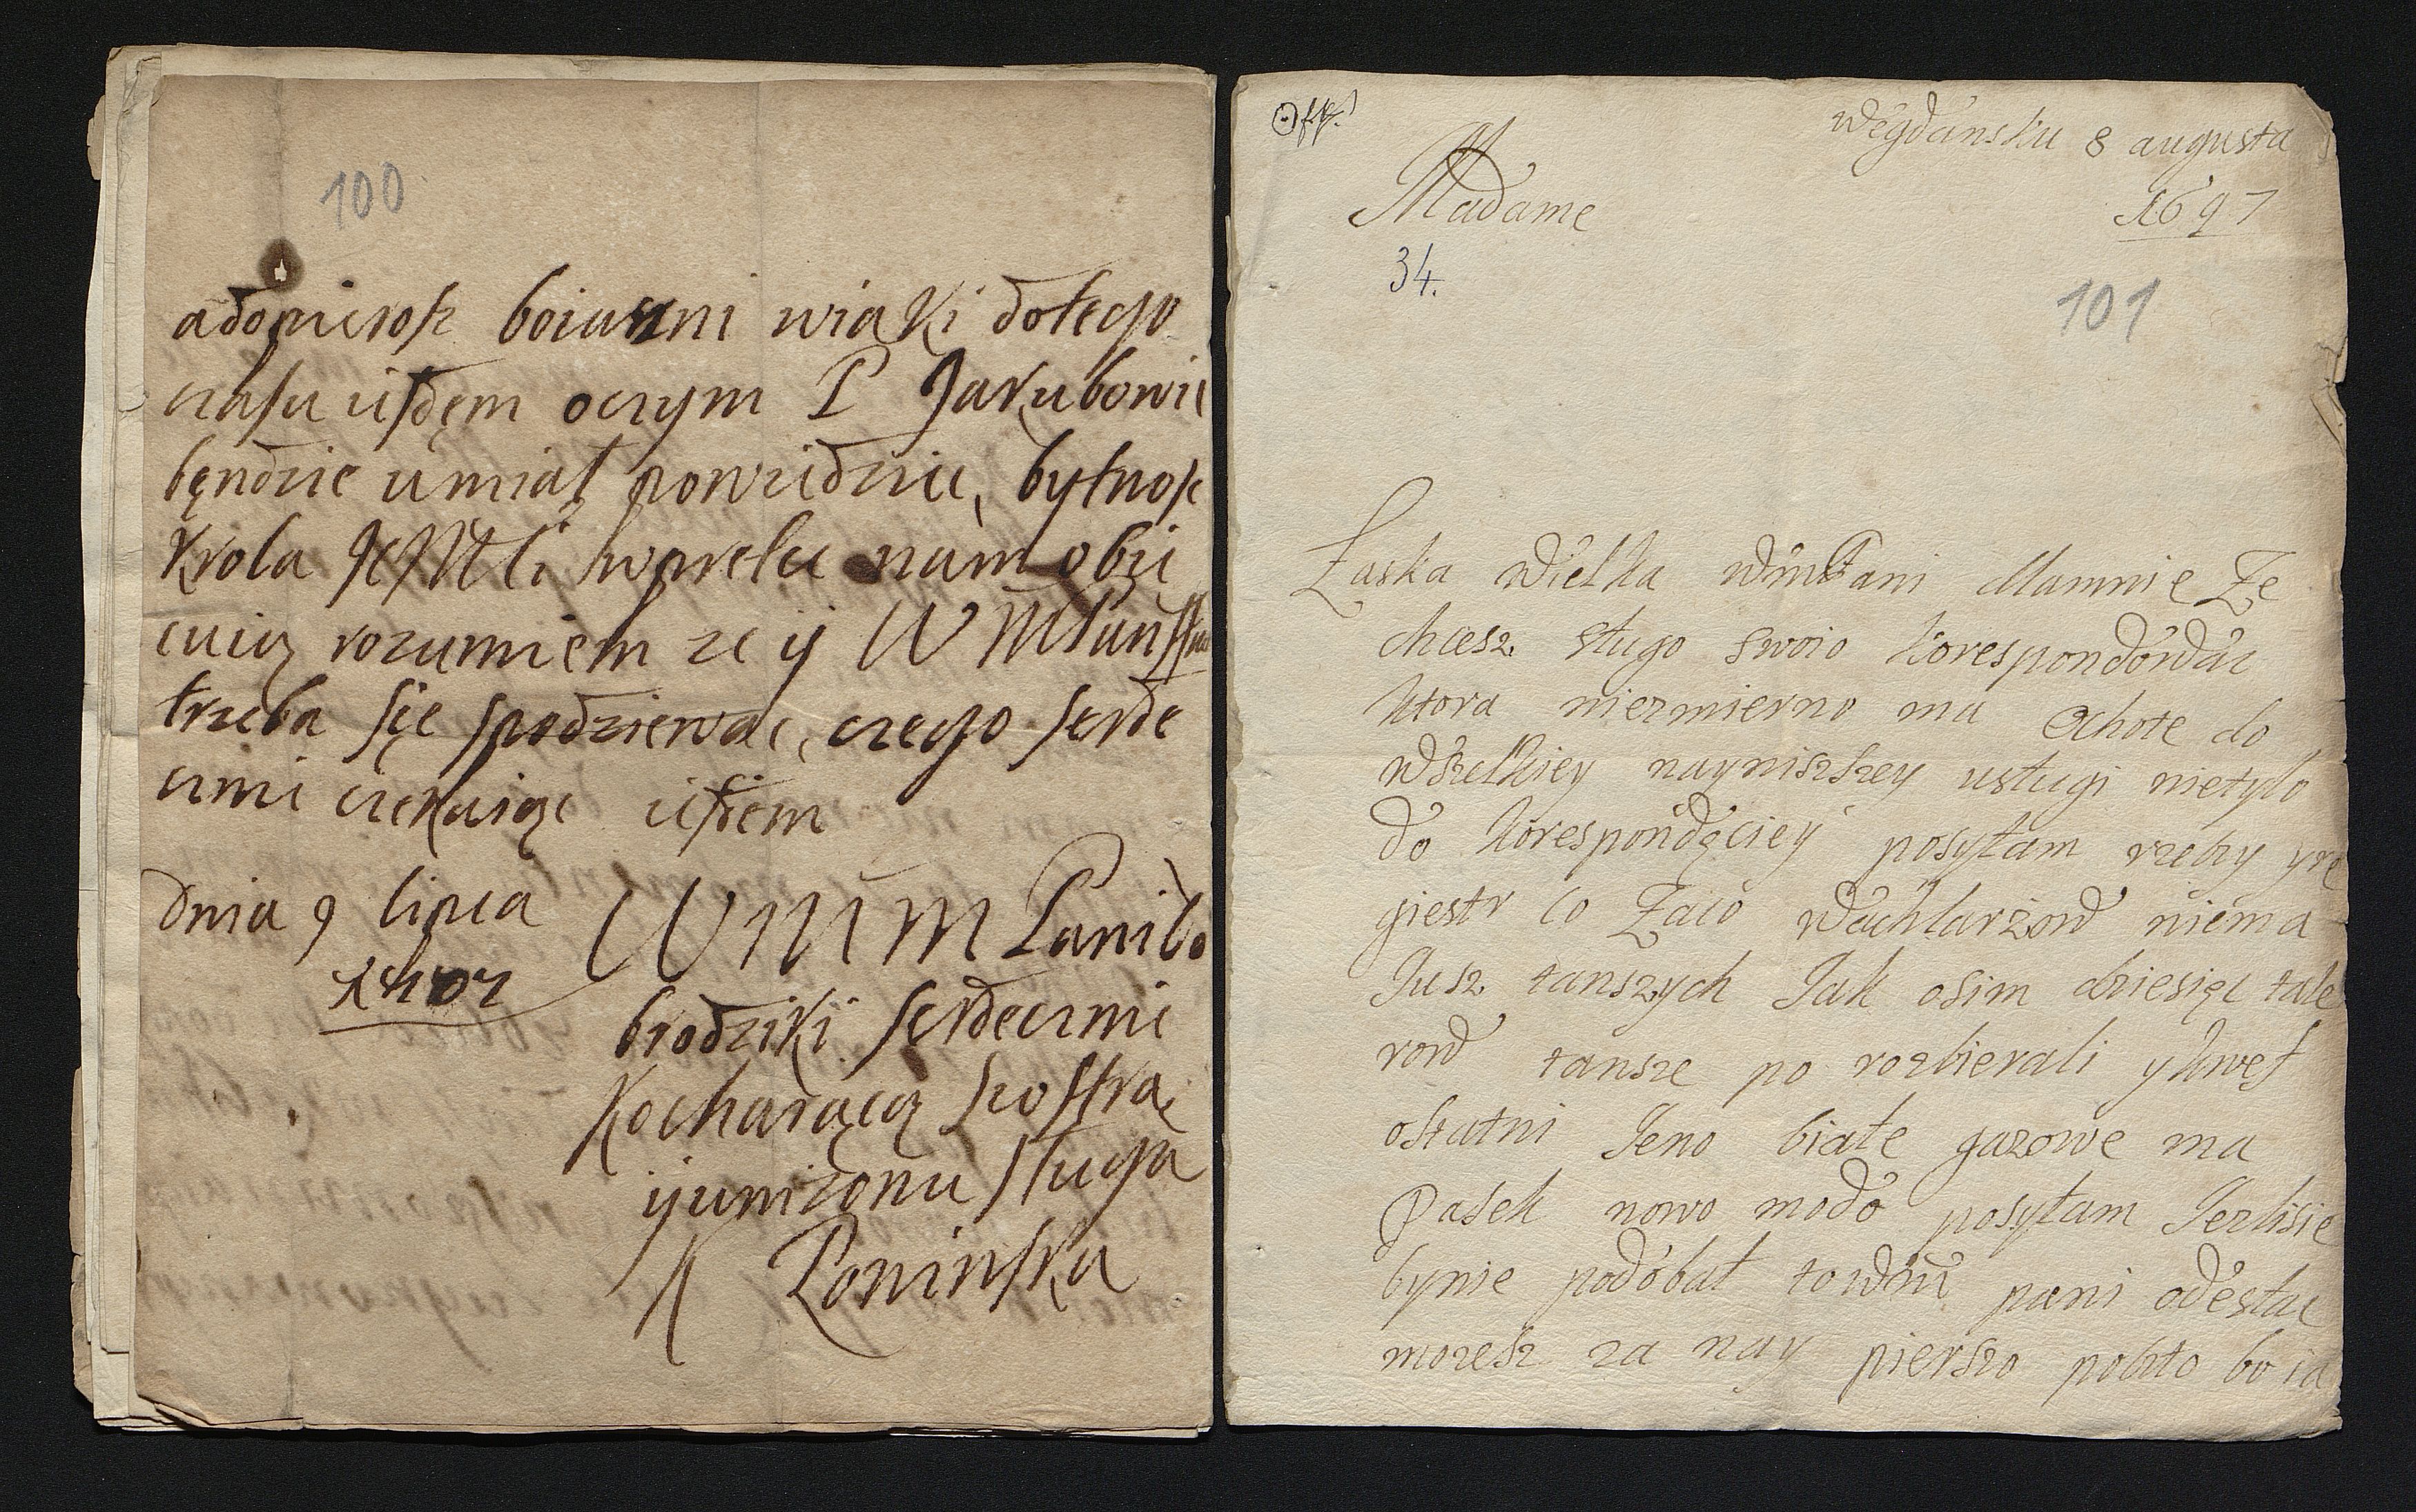 100
adopierosz boiuszni wiaki dotego
czasu iestdem oczym P Jakubowic
bęndzie umiał powiedzic, bytnosc
Krola JeMCli wpretce nam obie
cuią rozumiem ze ij W M Pańska
trzeba się spodziewac, czego serde
cznie czekaiąc iestem
dnia 9 lipca
W M M Panibo
brodziki serdecznie
Kochaiącą siostra
ijunizona sługa
K Poninska
wegdansku 8 augusta
1697
Madame
34.
101
Łaska wielka wmPani dlamnie Ze
chcesz sługo swoio korespondowac
ktora niezmierno ma ochote do
wszelkiey nayniszszey usługi nietylo
do korespondęciey posyłam rzeczy yre
giestr co Zaco wachlarzow niema
Jusz tanszych Jak osim dziesięc tale
row tansze po rozbierali ykwef
ostatni Jeno białe gazowe ma
Pasek nowo modo posyłam Jezlisie
bynie podobał towm pani odesłac
mozesz za nay pierszo pohto bo ia